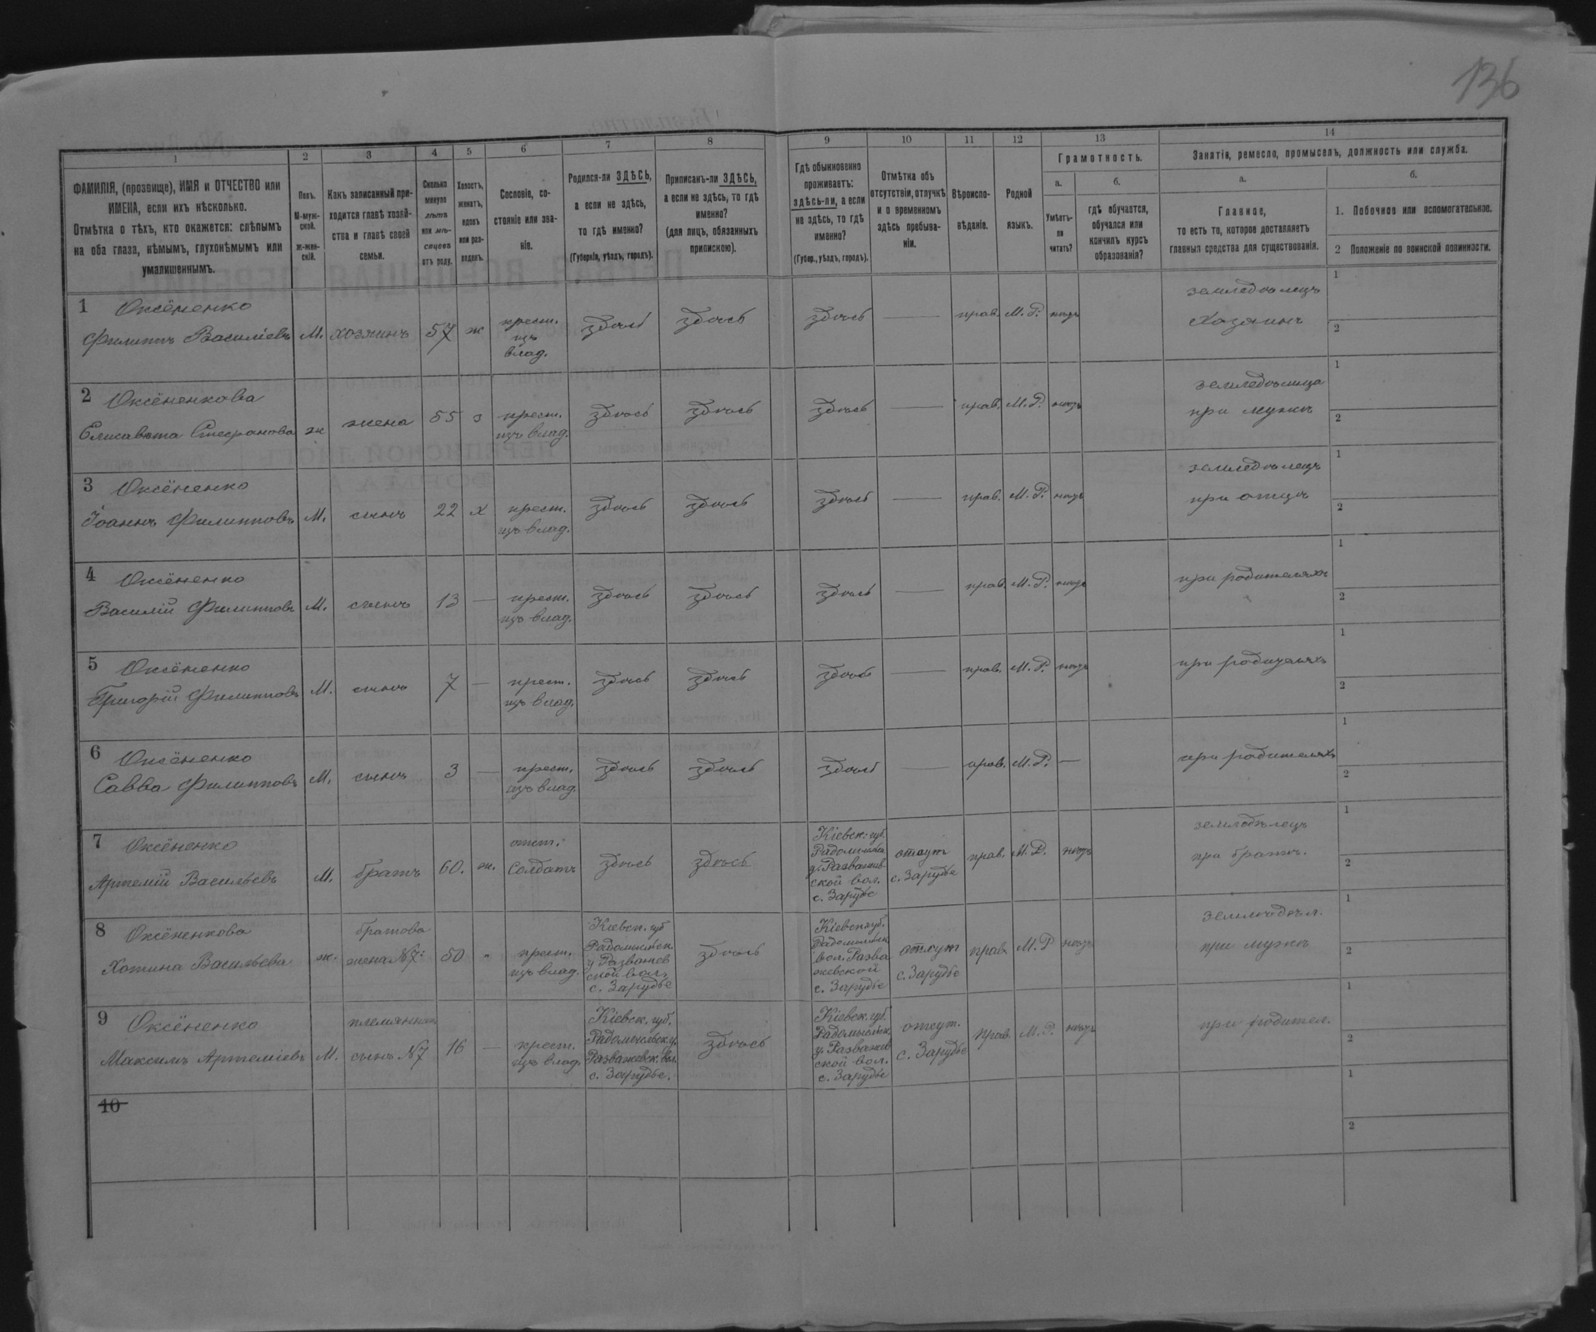 136
1
2
3
4
5
6
7
8
9
10
11
12
13
14
ФАМИЛІЯ, (прозвище), ИМЯ и ОТЧЕСТВО или
ИМЕНА, если ихъ нѣсколько.
Отмѣтка о тѣхъ, кто окажется: слѣпымъ
на оба глаза, нѣмымъ, глухонѣмымъ или
умалишеннымъ.
Полъ.
М-муж-
ской.
Ж-жен-
скій.
Какъ записанный при-
ходится главѣ хозяй-
ства и главѣ своей
семьи.
Сколько
минуло
лѣтъ
или мѣ-
сяцевъ
отъ роду.
Холостъ,
женатъ,
вдовъ
или раз-
веденъ.
Сословіе, со-
стояніе или зва-
ніе.
Родился-ли ЗДѢСЬ,
а если не здѣсь,
то гдѣ именно?
(Губернія, уѣздъ, городъ).
Приписанъ-ли ЗДѢСЬ,
а если не здѣсь, то гдѣ
именно?
(для лицъ, обязанныхъ
припискою).
Гдѣ обыкновенно
проживаетъ:
здѣсь-ли, а если
не здѣсь, то гдѣ
именно?
(Губер., уѣздъ, городъ).
Отмѣтка объ
отсутствіи, отлучкѣ
и о временномъ
здѣсь пребыва-
ніи.
Вѣроиспо-
вѣданіе.
Родной
языкъ.
Грамотность.
а.
Умѣетъ-
ли
читать?
б.
гдѣ обучается,
обучался или
кончилъ курсъ
образованія?
Занятія, ремесло, промыселъ, должность или служба.
а.
Главное,
то есть то, которое доставляетъ
главныя средства для существованія.
б.
1. Побочное или вспомогательное.
2 Положеніе по воинской повинности.
1 Оксёненко
Филиппъ Василіевъ М. хозяинъ 57 ж
крест.
изъ
влад.
здѣсь здѣсь здѣсь — прав. М.Р. нѣтъ
земледѣлецъ
Хозяинъ
1
2
2 Оксёненкова
Елисавета ж жена 55 з
крест.
изъ влад.
здѣсь здѣсь здѣсь — прав. М.Р. нѣтъ
при мужѣ
1
2
3 Оксёненко
Іоаннъ Филипповъ М. сынъ 22 х
крест.
изъ влад.
здѣсь здѣсь здѣсь — прав. М.Р. нѣтъ
земледѣлецъ
при отцѣ
1
2
4 Оксёненко
Василій Филипповъ М. сынъ 13 —
крест.
изъ влад.
здѣсь здѣсь здѣсь — прав. М.Р. нѣтъ
при родителяхъ
1
2
5 Оксёненко
Григорій Филипповъ М. сынъ 7 —
крест.
изъ влад.
здѣсь здѣсь здѣсь — прав. М.Р. нѣтъ
при родителяхъ
1
2
6 Оксёненко
Савва Филипповъ М. сынъ 3 —
крест.
изъ влад.
здѣсь здѣсь здѣсь — прав. М.Р. —
при родителяхъ
1
2
7 Оксёненко
Артемій Васильевъ М. братъ 60. ж.
отст.
Солдатъ
здѣсь здѣсь
Кіевск. губ.
Радомысльск.
у. Разважев
ской вол.
с. Зарудье
отсут.
с. Зарудье
прав. М.Р. нѣтъ
земледѣлецъ
при братѣ.
1
2
8 Оксёненкова
Хотина Васильева ж.
братова
жена №7 50
крест.
изъ влад.
Кіевск. губ
Радомысльск.
у Разважев
ской вол.
с. Зарудье
здѣсь
Кіевск губ.
Радомысльск
вол. Разва
жевской
с. Зарудье
отсут
с. Зарудье
прав. М.Р нѣтъ
земледѣл.
при мужѣ
1
2
9 Оксёненко
Максимъ Артеміевъ М.
племянникъ
сынъ №7 16 —
крест.
изъ влад.
Кіевск. губ.
Радомысльск у.
Разважевск. вол.
с. Зарудье.
здѣсь
Кіевск. губ.
Радомысльск
у. Разважев
ской вол.
с. Зарудье
отсут.
с. Зарудье
прав. М.Р. нѣтъ
при родител.
1
2
10
1
2